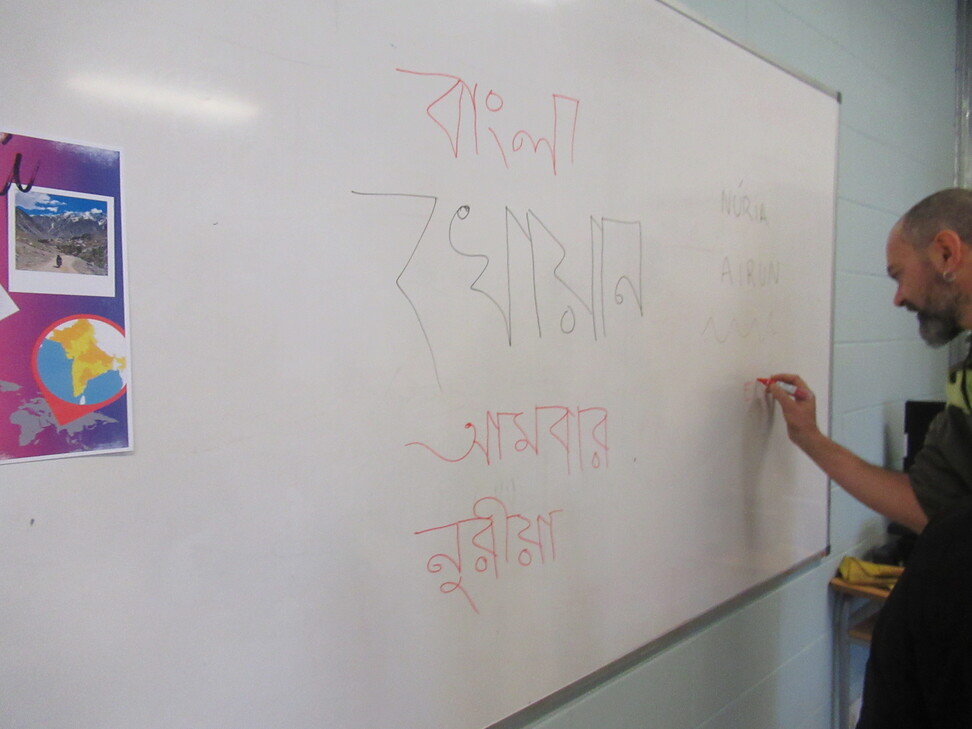 বাংলা
খোয়ান
আমবার
নুরীয়া
NÚRIA
AIRUN